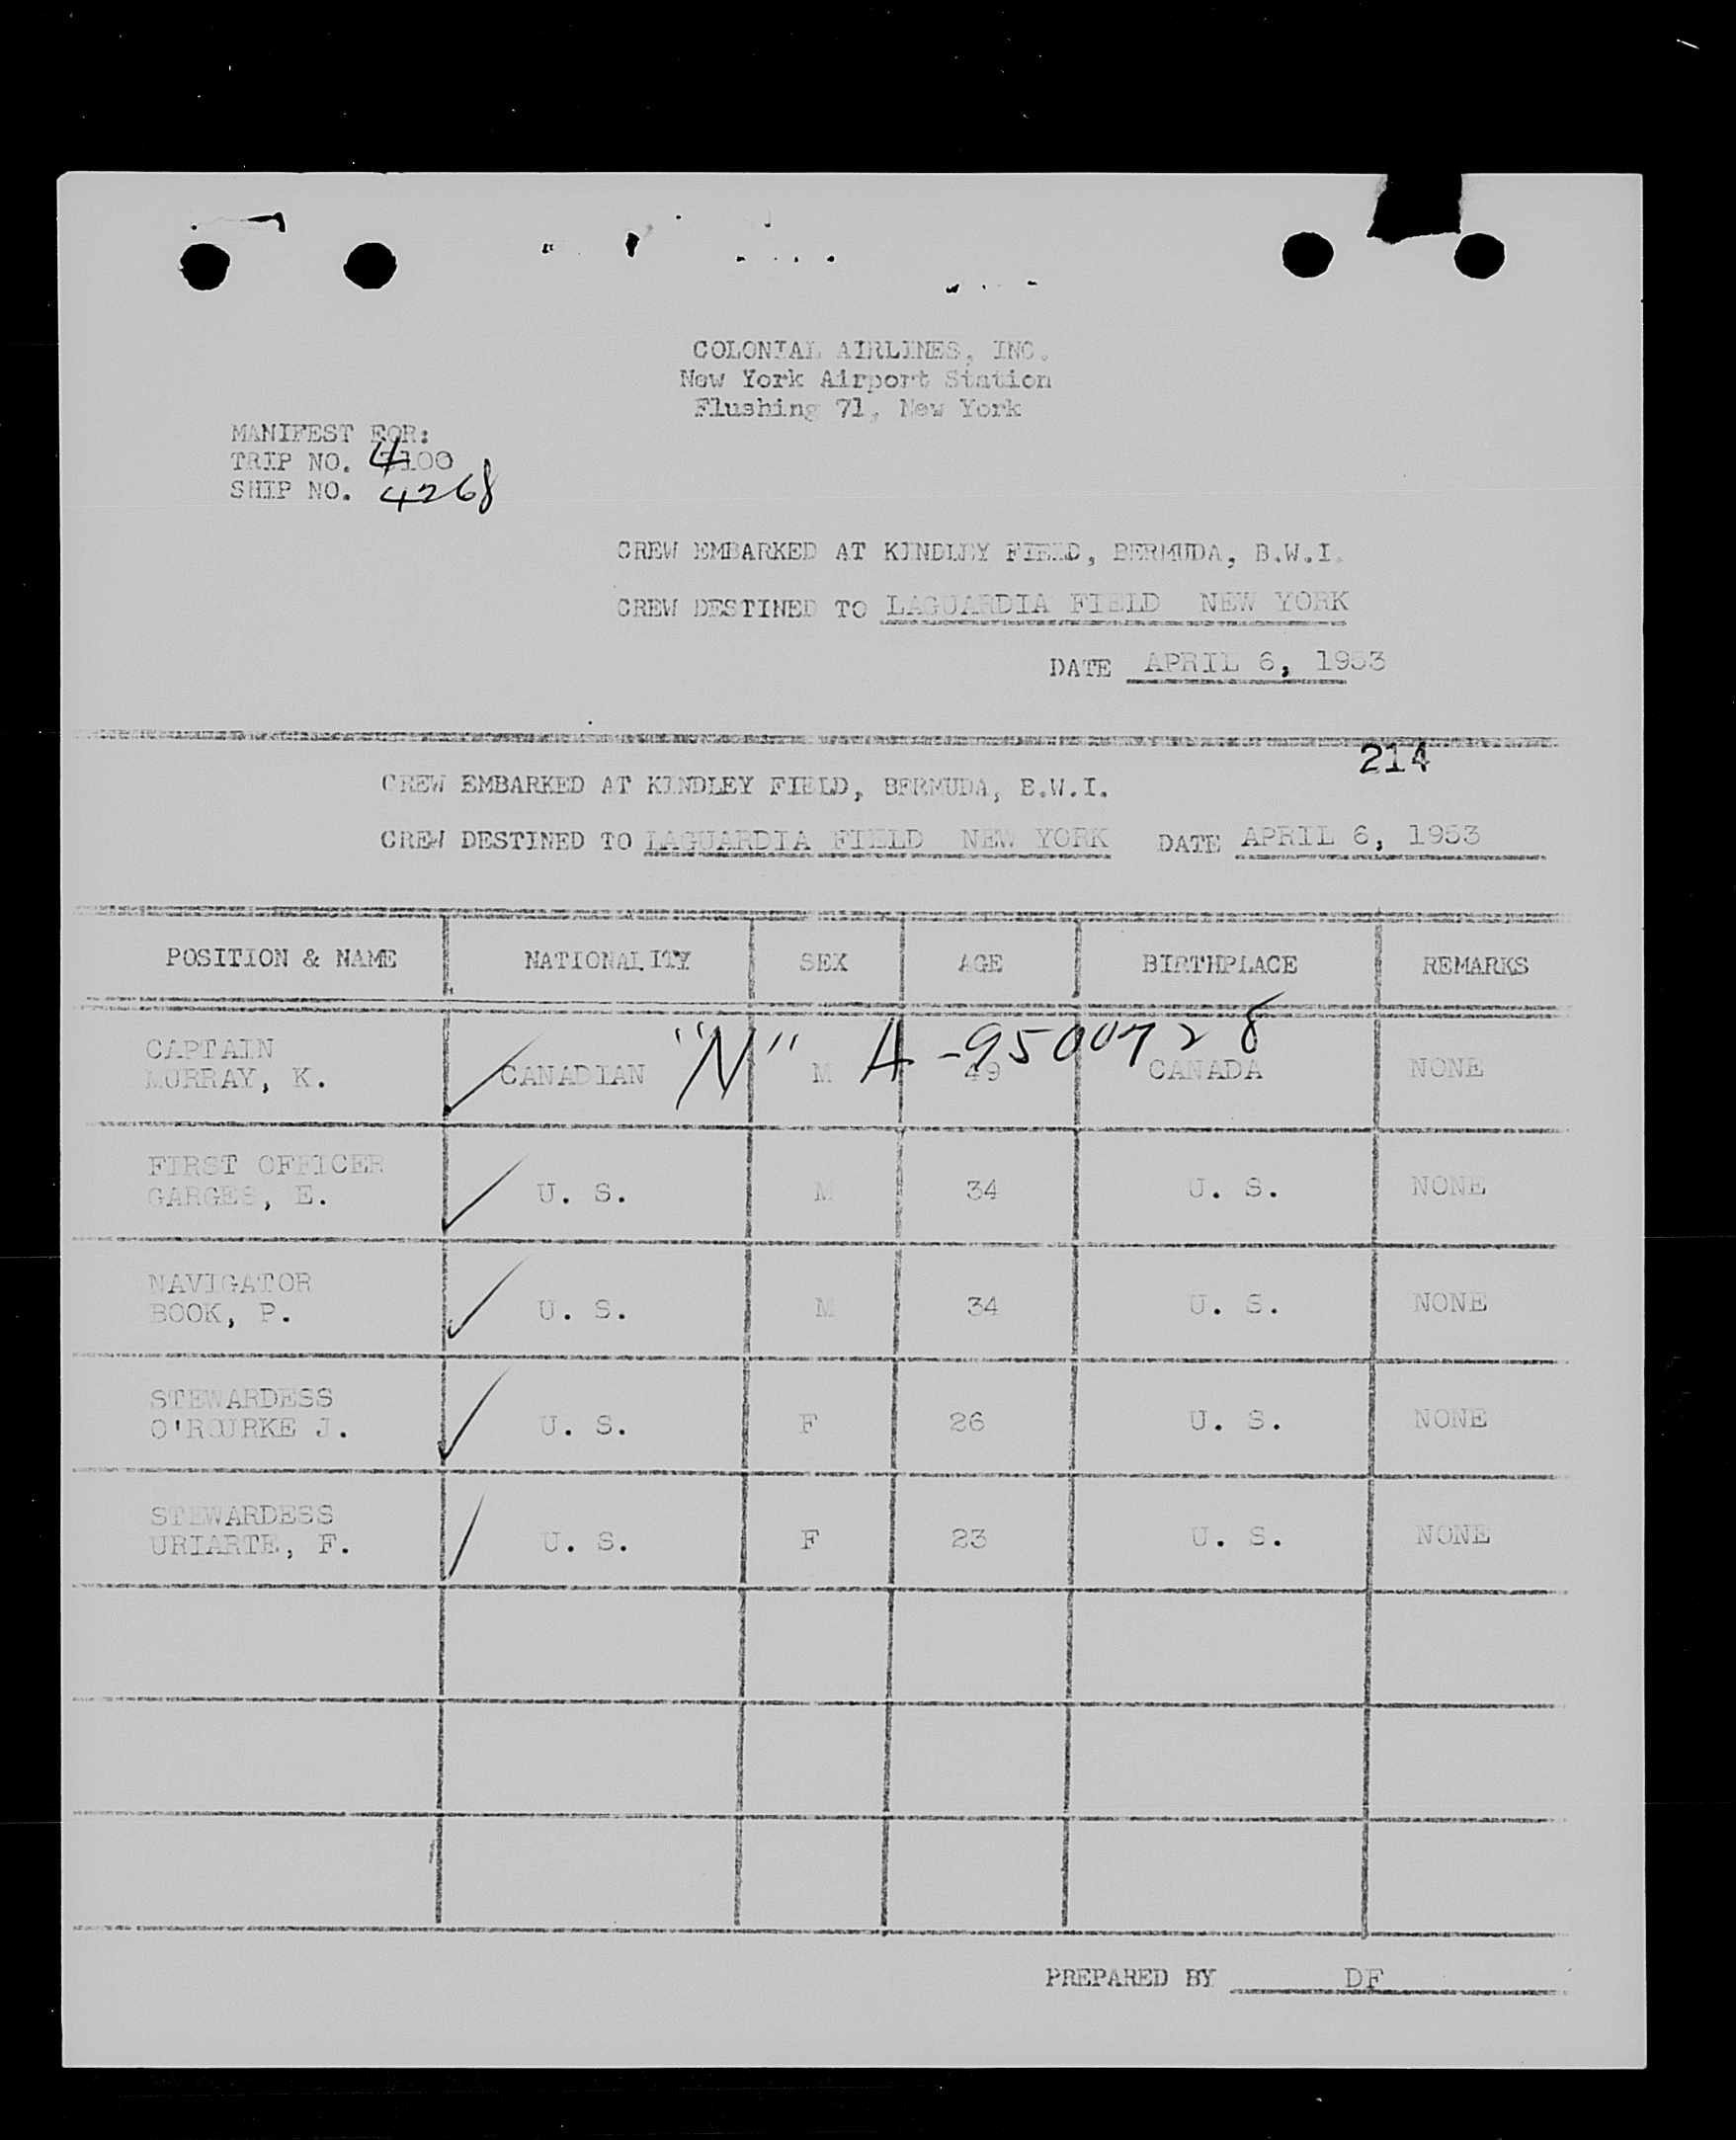 COLONIAL AIRLINES, INC.
New York Airport Station
Flushing 71, New York
MANIFEST FOR:
TRIP NO. 4100
SHIP NO. 4268
CREW EMBARKED AT KINDLEY FIELD, BERMUDA, B.W.I.
CREW DESTINED TO LAGUARDIA FIELD NEW YORK
DATE APRIL 6, 1953
214
CREW EMBARKED AT KINDLEY FIELD, BERMUDA, B.W.I.
CREW DESTINED TO LAGUARDIA FIELD NEW YORK DATE APRIL 6, 1953
POSITION & NAME NATIONALITY SEX AGE BIRTHPLACE REMARKS
"N" A-9500728
CAPTAIN
MURRAY, K. CANADIAN M 49 CANADA NONE
FIRST OFFICER
GARGES, E. U. S. M 34 U. S. NONE
NAVIGATOR
BOOK, P. U. S. M 34 U. S. NONE
STEWARDESS
O'ROURKE J. U. S. F 26 U. S. NONE
STEWARDESS
URIARTE, F. U. S. F 23 U. S. NONE
PREPARED BY DF